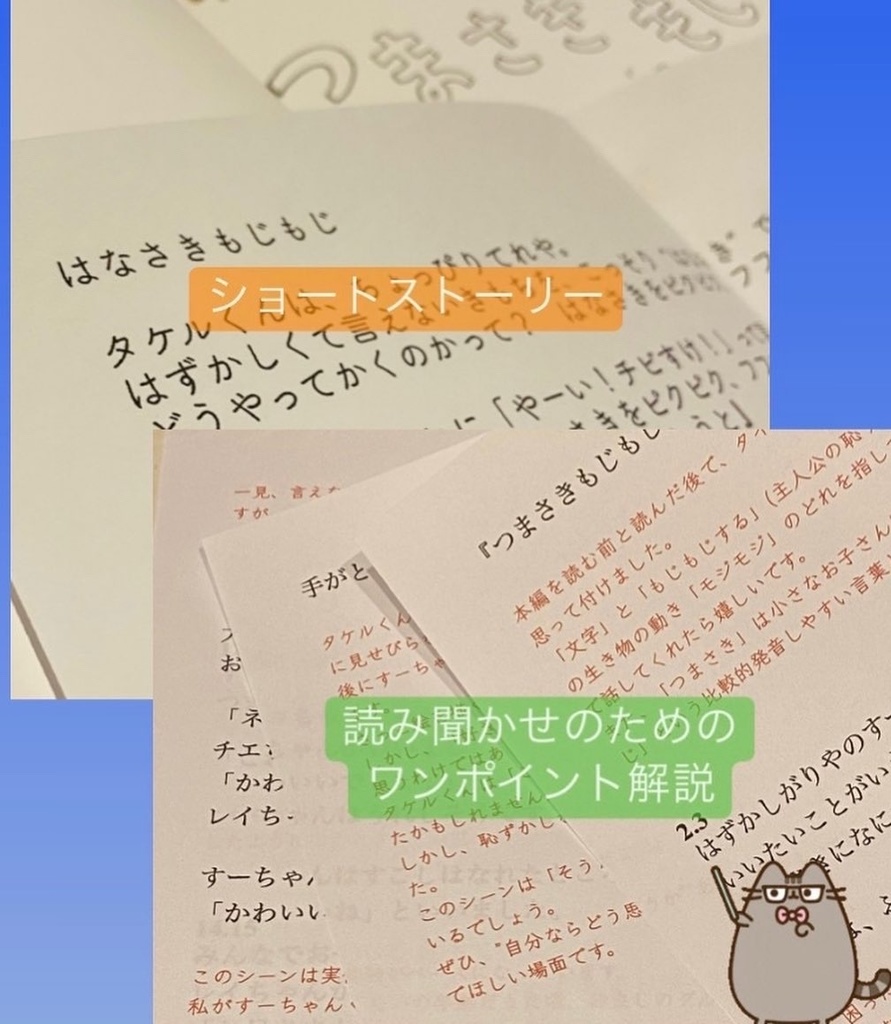 つまさきもじ
はなさきもじもじ
ショートストーリー
タケルくんは、ちょっぴりてれや。
はずかしくて言えないきもち
どうやってかくのかって？
はなさきをピクピク
に「やーい！チビすけ！」
さきをピクピク、フフ
一見、言えな
すが
手がと
お
「ネ
チエ
「かわ
レイち
すーちゃ
「かわいい
このシーンは実
私がすーちゃん、
タケルくん
に見せびら
後にすーちゃ
しかし、
思うわけではあ
タケルくんは
たかもしれません
しかし、恥ずかし
た。
このシーンは「そう
いるでしょう。
ぜひ、"自分ならどう思
てほしい場面です。
『つまさきもじもじ
本編を読む前と読んだ後で、タイ
思って付けました。
「文字」と「もじもじする」(主人公の恥
の生き物の動き「モジモジ」のどれを指し
て話してくれたら嬉しいです。
「つまさき」は小さなお子さん
比較的発音しやすい言葉
読み聞かせのための
ワンポイント解説
2.3
はずかしがりやのすー
いいたいことがい
きになに